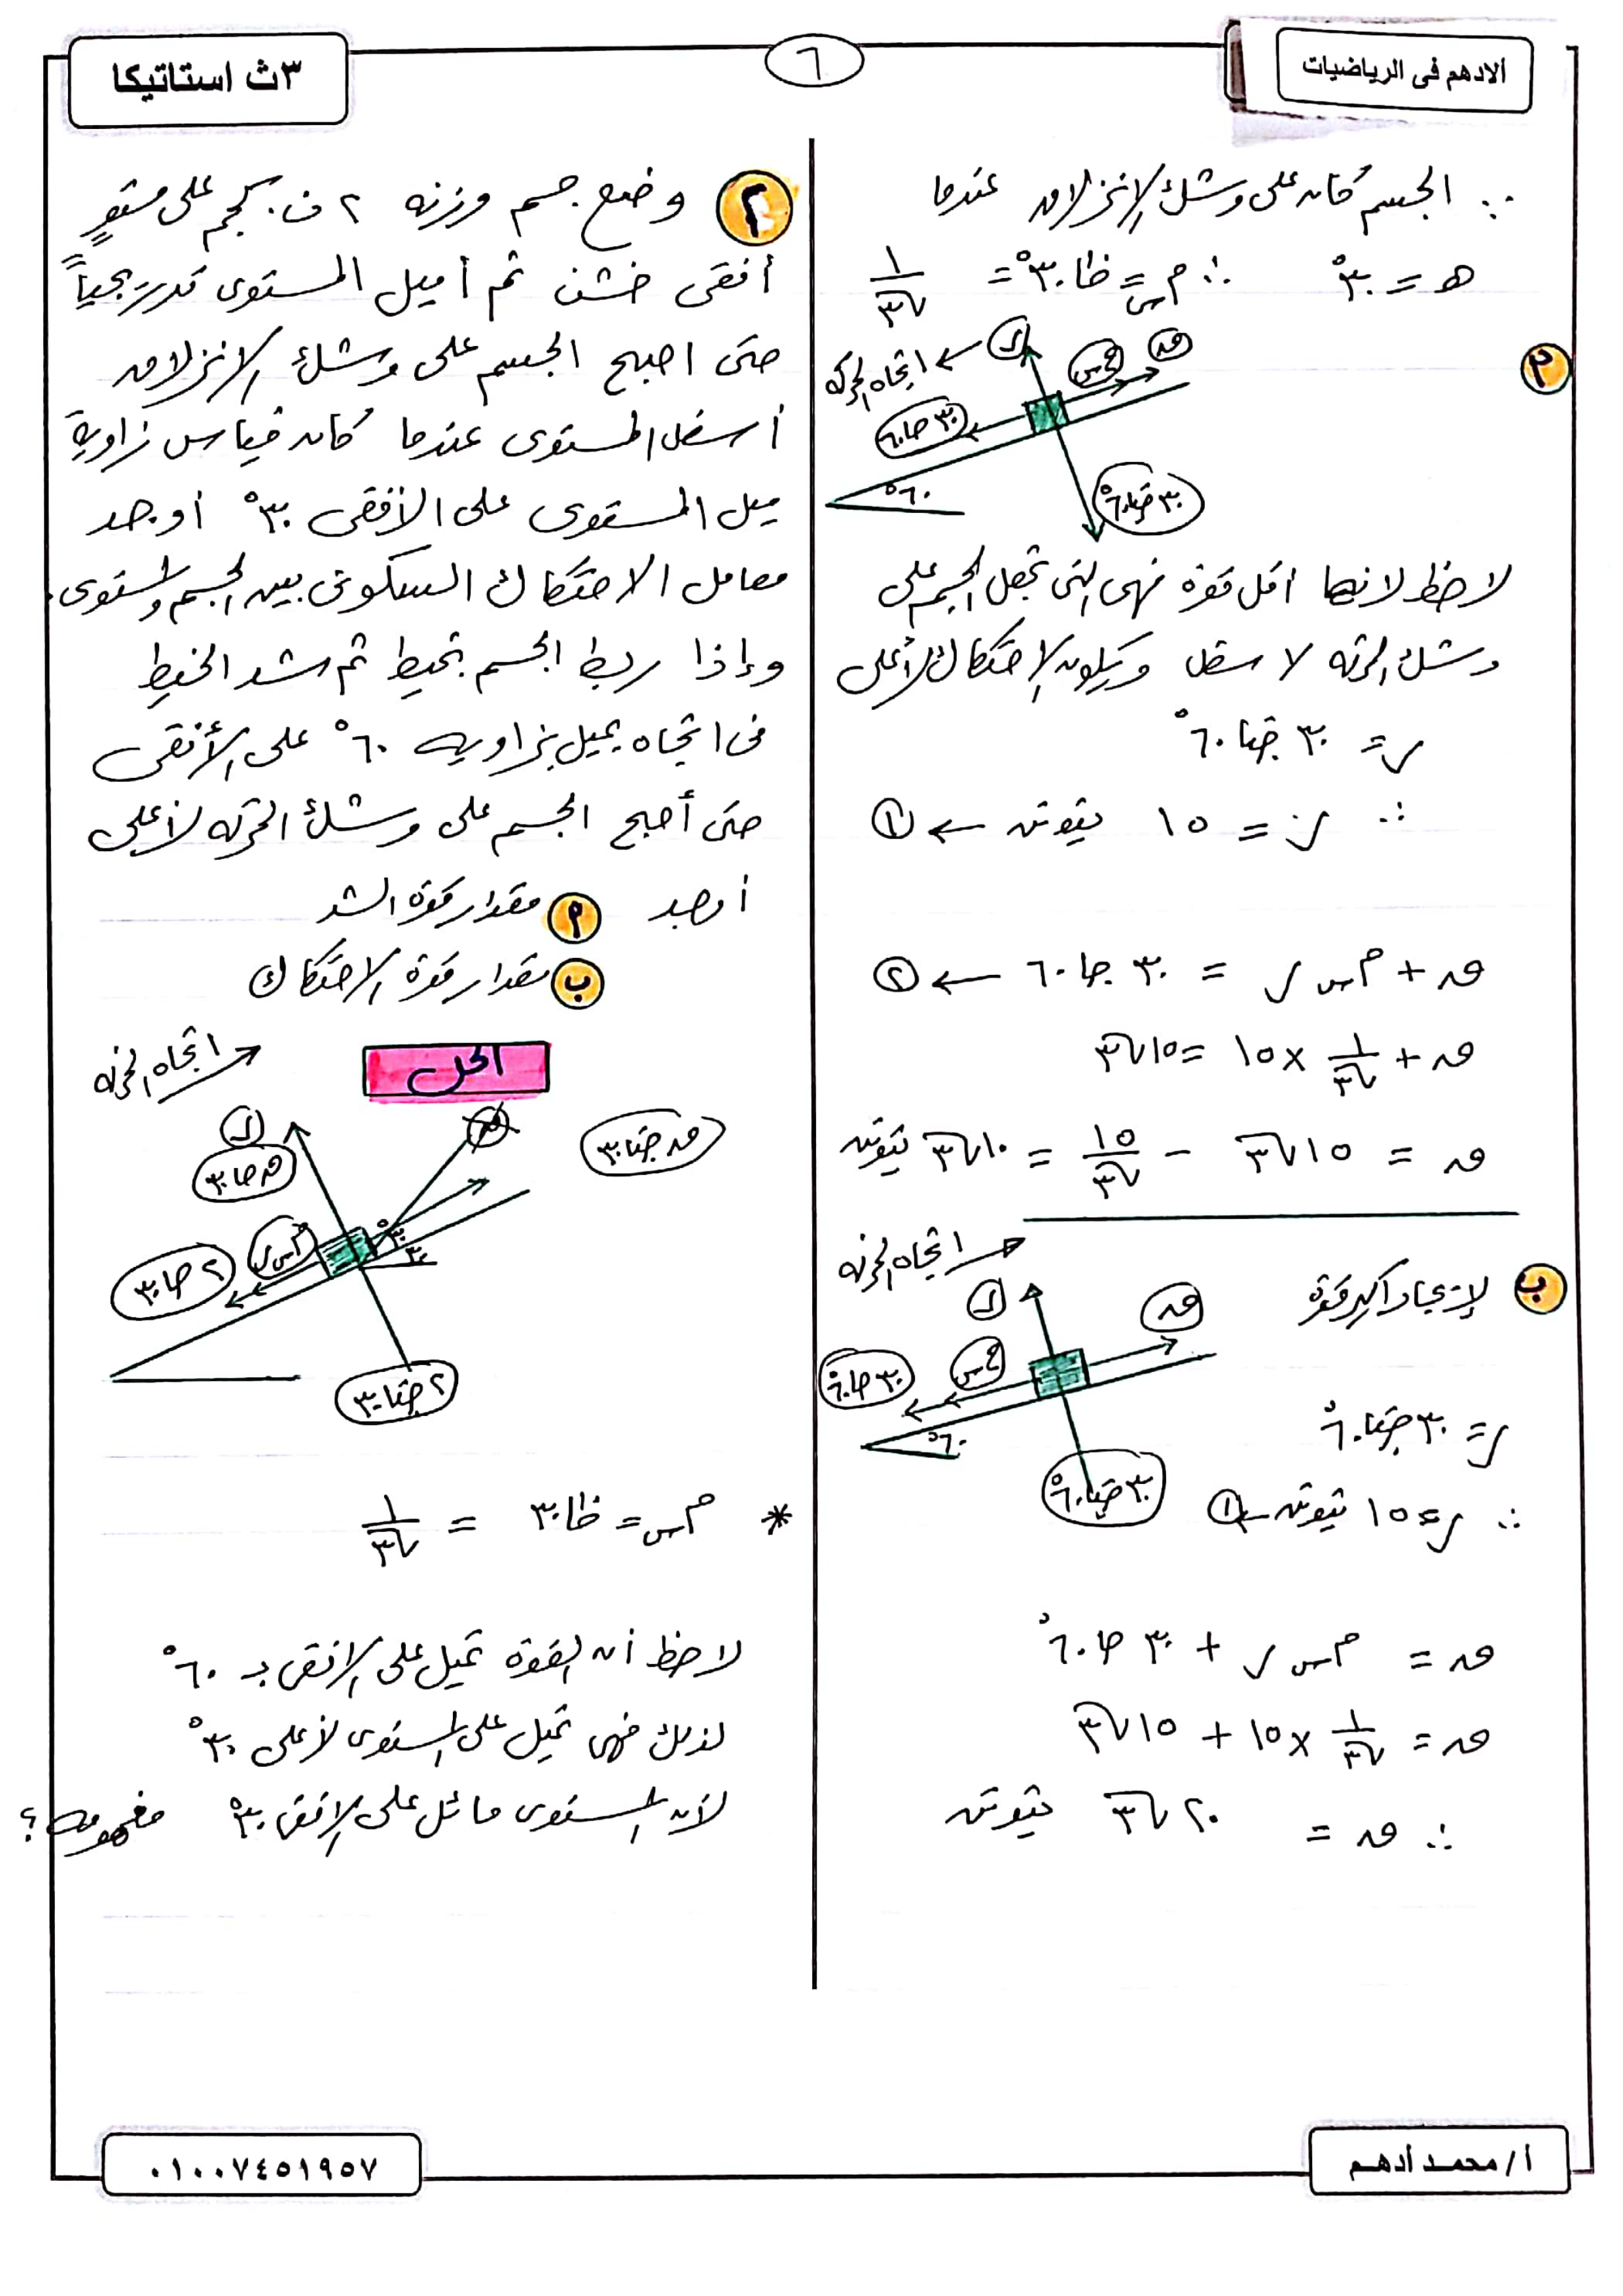 الادهم فى الرياضيات
٦
٣ث استاتيكا
∵ الجسم كان على وشك الإنزلاق عندما
هـ = ٣٠° ∴ م س = ظا ٣٠° = ١/√٣
م
ر
ق
م س
اتجاه الحركه
٣٠ جا ٦٠
٦٠°
٣٠ جتا ٦٠°
لاحظ لانها اقل قوة فهى التى تجعل الجسم على
وشك الحركه لاسفل ويكون الإحتكاك لأعلى
ر = ٣٠ جتا ٦٠°
∴ ر = ١٥ نيوتن ← ①
ق + م س ر = ٣٠ جا ٦٠ ← ②
ق + ١/√٣ × ١٥ = ١٥√٣
ق = ١٥√٣ - ١٥/√٣ = ١٠√٣ نيوتن
ب لإيجاد اكبر قوة
اتجاه الحركه
ر
ق
٣٠ جا ٦٠°
٦٠°
٣٠ جتا ٦٠°
ر = ٣٠ جتا ٦٠°
∴ ر = ١٥ نيوتن ← ①
ق = م س ر + ٣٠ جا ٦٠°
ق = ١/√٣ × ١٥ + ١٥√٣
∴ ق = ٢٠√٣ نيوتن
٢ وضع جسم وزنه ٢ ث.كجم على مستوٍ
أفقى خشن ثم أميل المستوى تدريجياً
حتى اصبح الجسم على وشك الإنزلاق
أسفل المستوى عندما كان قياس زاوية
ميل المستوى على الأفقى ٣٠° أوجد
معامل الاحتكاك السكونى بين الجسم والمستوى.
وإذا ربط الجسم بخيط ثم شد الخيط
فى اتجاه يميل بزاويه ٦٠° على الأفقى
حتى أصبح الجسم على وشك الحركه لأعلى
أوجد م مقدار قوة الشد
ب مقدار قوة الإحتكاك
الحل
اتجاه الحركه
ر
ق جا ٣٠
ق
ق جتا ٣٠
م س ر
٢ جا ٣٠
٣٠°
٣٠
٢ جتا ٣٠
* م س = ظا ٣٠ = ١/√٣
لاحظ أن القوة تميل على الافقى بـ ٦٠°
لذلك فهى تميل على المستوى لأعلى ٣٠°
لأن المستوى مائل على الافقى ٣٠° مفهومه؟
أ/ محمد أدهم
٠١٠٠٧٤٥١٩٥٧